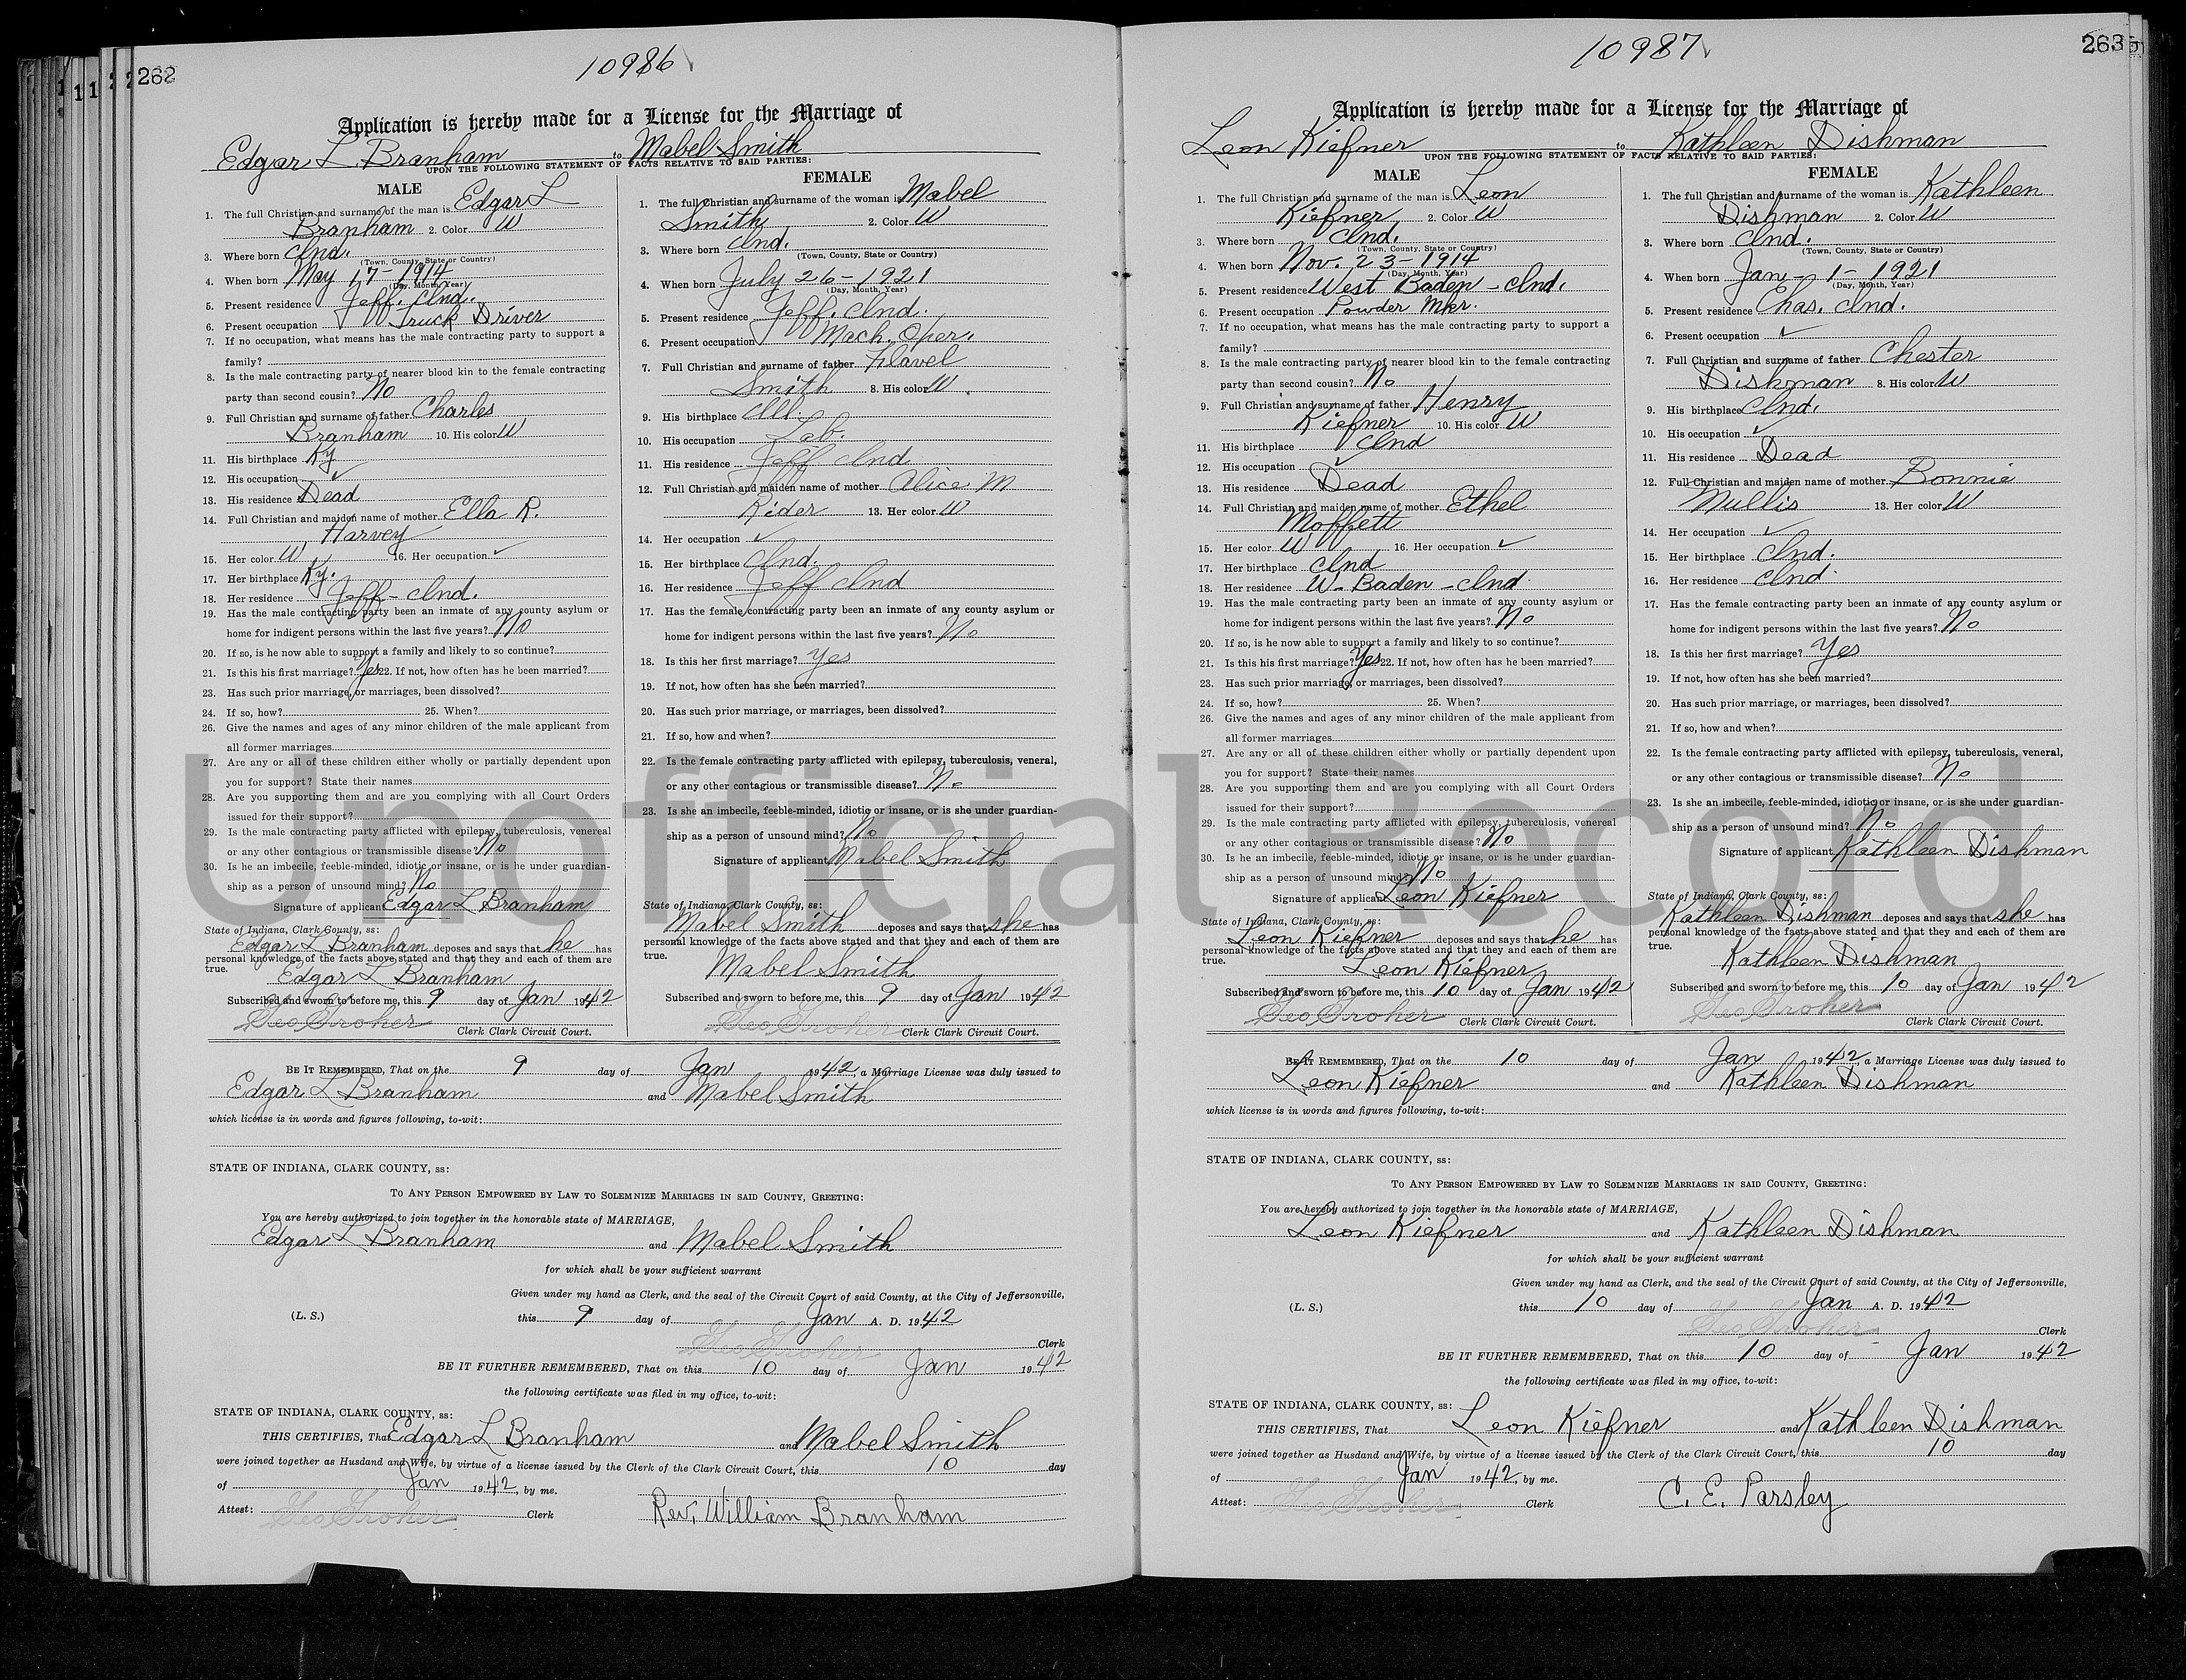 262
10986
Application is hereby made for a License for the Marriage of
Edgar L Branham to Mabel Smith
UPON THE FOLLOWING STATEMENT OF FACTS RELATIVE TO SAID PARTIES:
MALE
1. The full Christian and surname of the man is Edgar L
Branham 2. Color W
3. Where born Ind.
(Town, County, State or Country)
4. When born May 17 - 1914
(Day, Month, Year)
5. Present residence Jeff. Ind.
6. Present occupation Truck Driver
7. If no occupation, what means has the male contracting party to support a
family?
8. Is the male contracting party of nearer blood kin to the female contracting
party than second cousin? No
9. Full Christian and surname of father Charles
Branham 10. His color W
11. His birthplace Ky
12. His occupation ✓
13. His residence Dead
14. Full Christian and maiden name of mother Ella R.
Harvey
15. Her color W 16. Her occupation ✓
17. Her birthplace Ky.
18. Her residence Jeff - Ind.
19. Has the male contracting party been an inmate of any county asylum or
home for indigent persons within the last five years? No
20. If so, is he now able to support a family and likely to so continue?
21. Is this his first marriage? Yes 22. If not, how often has he been married?
23. Has such prior marriage, or marriages, been dissolved?
24. If so, how? 25. When?
26. Give the names and ages of any minor children of the male applicant from
all former marriages
27. Are any or all of these children either wholly or partially dependent upon
you for support? State their names
28. Are you supporting them and are you complying with all Court Orders
issued for their support?
29. Is the male contracting party afflicted with epilepsy, tuberculosis, venereal
or any other contagious or transmissible disease? No
30. Is he an imbecile, feeble-minded, idiotic or insane, or is he under guardian-
ship as a person of unsound mind? No
Signature of applicant Edgar L Branham
State of Indiana, Clark County, ss:
Edgar L Branham deposes and says that he has
personal knowledge of the facts above stated and that they and each of them are
true.
Edgar L Branham
Subscribed and sworn to before me, this 9 day of Jan 1942
Geo Troher Clerk Clark Circuit Court.
FEMALE
1. The full Christian and surname of the woman is Mabel
Smith 2. Color W
3. Where born Ind.
(Town, County, State or Country)
4. When born July 26 - 1921
(Day, Month, Year)
5. Present residence Jeff. Ind.
6. Present occupation Mach. Oper.
7. Full Christian and surname of father Flavel
Smith 8. His color W
9. His birthplace Ill.
10. His occupation Lab.
11. His residence Jeff Ind
12. Full Christian and maiden name of mother Alice M
Rider 13. Her color W
14. Her occupation ✓
15. Her birthplace Ind.
16. Her residence Jeff Ind
17. Has the female contracting party been an inmate of any county asylum or
home for indigent persons within the last five years? No
18. Is this her first marriage? Yes
19. If not, how often has she been married?
20. Has such prior marriage, or marriages, been dissolved?
21. If so, how and when?
22. Is the female contracting party afflicted with epilepsy, tuberculosis, veneral,
or any other contagious or transmissible disease? No
23. Is she an imbecile, feeble-minded, idiotic or insane, or is she under guardian-
ship as a person of unsound mind? No
Signature of applicant Mabel Smith
State of Indiana, Clark County, ss:
Mabel Smith deposes and says that she has
personal knowledge of the facts above stated and that they and each of them are
true.
Mabel Smith
Subscribed and sworn to before me, this 9 day of Jan 1942
Geo Troher Clerk Clark Circuit Court.
BE IT REMEMBERED, That on the 9 day of Jan 1942, a Marriage License was duly issued to
Edgar L Branham and Mabel Smith
which license is in words and figures following, to-wit:
STATE OF INDIANA, CLARK COUNTY, ss:
TO ANY PERSON EMPOWERED BY LAW TO SOLEMNIZE MARRIAGES IN SAID COUNTY, GREETING:
You are hereby authorized to join together in the honorable state of MARRIAGE,
Edgar L Branham and Mabel Smith
for which shall be your sufficient warrant
Given under my hand as Clerk, and the seal of the Circuit Court of said County, at the City of Jeffersonville,
(L. S.) this 9 day of Jan A. D. 1942
Geo Troher Clerk
BE IT FURTHER REMEMBERED, That on this 10 day of Jan 1942
the following certificate was filed in my office, to-wit:
STATE OF INDIANA, CLARK COUNTY, ss:
THIS CERTIFIES, That Edgar L Branham and Mabel Smith
were joined together as Husband and Wife, by virtue of a license issued by the Clerk of the Clark Circuit Court, this 10 day
of Jan 1942, by me.
Attest: Geo Troher Clerk Rev. William Branham
263
10987
Application is hereby made for a License for the Marriage of
Leon Kiefner to Kathleen Dishman
UPON THE FOLLOWING STATEMENT OF FACTS RELATIVE TO SAID PARTIES:
MALE
1. The full Christian and surname of the man is Leon
Kiefner 2. Color W
3. Where born Ind.
(Town, County, State or Country)
4. When born Nov. 23 - 1914
(Day, Month, Year)
5. Present residence West Baden - Ind.
6. Present occupation Powder Mkr.
7. If no occupation, what means has the male contracting party to support a
family?
8. Is the male contracting party of nearer blood kin to the female contracting
party than second cousin? No
9. Full Christian and surname of father Henry
Kiefner 10. His color W
11. His birthplace Ind
12. His occupation ✓
13. His residence Dead
14. Full Christian and maiden name of mother Ethel
Moffett
15. Her color W 16. Her occupation ✓
17. Her birthplace Ind
18. Her residence W - Baden - Ind.
19. Has the male contracting party been an inmate of any county asylum or
home for indigent persons within the last five years? No
20. If so, is he now able to support a family and likely to so continue?
21. Is this his first marriage? Yes 22. If not, how often has he been married?
23. Has such prior marriage, or marriages, been dissolved?
24. If so, how? 25. When?
26. Give the names and ages of any minor children of the male applicant from
all former marriages
27. Are any or all of these children either wholly or partially dependent upon
you for support? State their names
28. Are you supporting them and are you complying with all Court Orders
issued for their support?
29. Is the male contracting party afflicted with epilepsy, tuberculosis, venereal
or any other contagious or transmissible disease? No
30. Is he an imbecile, feeble-minded, idiotic or insane, or is he under guardian-
ship as a person of unsound mind? No
Signature of applicant Leon Kiefner
State of Indiana, Clark County, ss:
Leon Kiefner deposes and says that he has
personal knowledge of the facts above stated and that they and each of them are
true.
Leon Kiefner
Subscribed and sworn to before me, this 10 day of Jan 1942
Geo Troher Clerk Clark Circuit Court.
FEMALE
1. The full Christian and surname of the woman is Kathleen
Dishman 2. Color W
3. Where born Ind.
(Town, County, State or Country)
4. When born Jan - 1 - 1921
(Day, Month, Year)
5. Present residence Chas. Ind.
6. Present occupation ✓
7. Full Christian and surname of father Chester
Dishman 8. His color W
9. His birthplace Ind.
10. His occupation ✓
11. His residence Dead
12. Full Christian and maiden name of mother Bonnie
Mullis 13. Her color W
14. Her occupation ✓
15. Her birthplace Ind.
16. Her residence Ind.
17. Has the female contracting party been an inmate of any county asylum or
home for indigent persons within the last five years? No
18. Is this her first marriage? Yes
19. If not, how often has she been married?
20. Has such prior marriage, or marriages, been dissolved?
21. If so, how and when?
22. Is the female contracting party afflicted with epilepsy, tuberculosis, veneral,
or any other contagious or transmissible disease? No
23. Is she an imbecile, feeble-minded, idiotic or insane, or is she under guardian-
ship as a person of unsound mind? No
Signature of applicant Kathleen Dishman
State of Indiana, Clark County, ss:
Kathleen Dishman deposes and says that she has
personal knowledge of the facts above stated and that they and each of them are
true.
Kathleen Dishman
Subscribed and sworn to before me, this 10 day of Jan 1942
Geo Troher Clerk Clark Circuit Court.
BE IT REMEMBERED, That on the 10 day of Jan 1942, a Marriage License was duly issued to
Leon Kiefner and Kathleen Dishman
which license is in words and figures following, to-wit:
STATE OF INDIANA, CLARK COUNTY, ss:
TO ANY PERSON EMPOWERED BY LAW TO SOLEMNIZE MARRIAGES IN SAID COUNTY, GREETING:
You are hereby authorized to join together in the honorable state of MARRIAGE,
Leon Kiefner and Kathleen Dishman
for which shall be your sufficient warrant
Given under my hand as Clerk, and the seal of the Circuit Court of said County, at the City of Jeffersonville,
(L. S.) this 10 day of Jan A. D. 1942
Geo Troher Clerk
BE IT FURTHER REMEMBERED, That on this 10 day of Jan 1942
the following certificate was filed in my office, to-wit:
STATE OF INDIANA, CLARK COUNTY, ss:
THIS CERTIFIES, That Leon Kiefner and Kathleen Dishman
were joined together as Husband and Wife, by virtue of a license issued by the Clerk of the Clark Circuit Court, this 10 day
of Jan 1942, by me.
Attest: Geo Troher Clerk C. E. Parsley
Unofficial Record